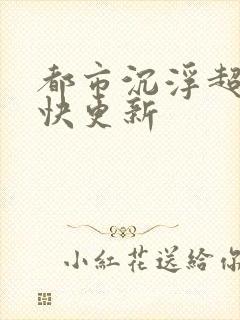 都市沉浮超
快更新
小紅花送給你